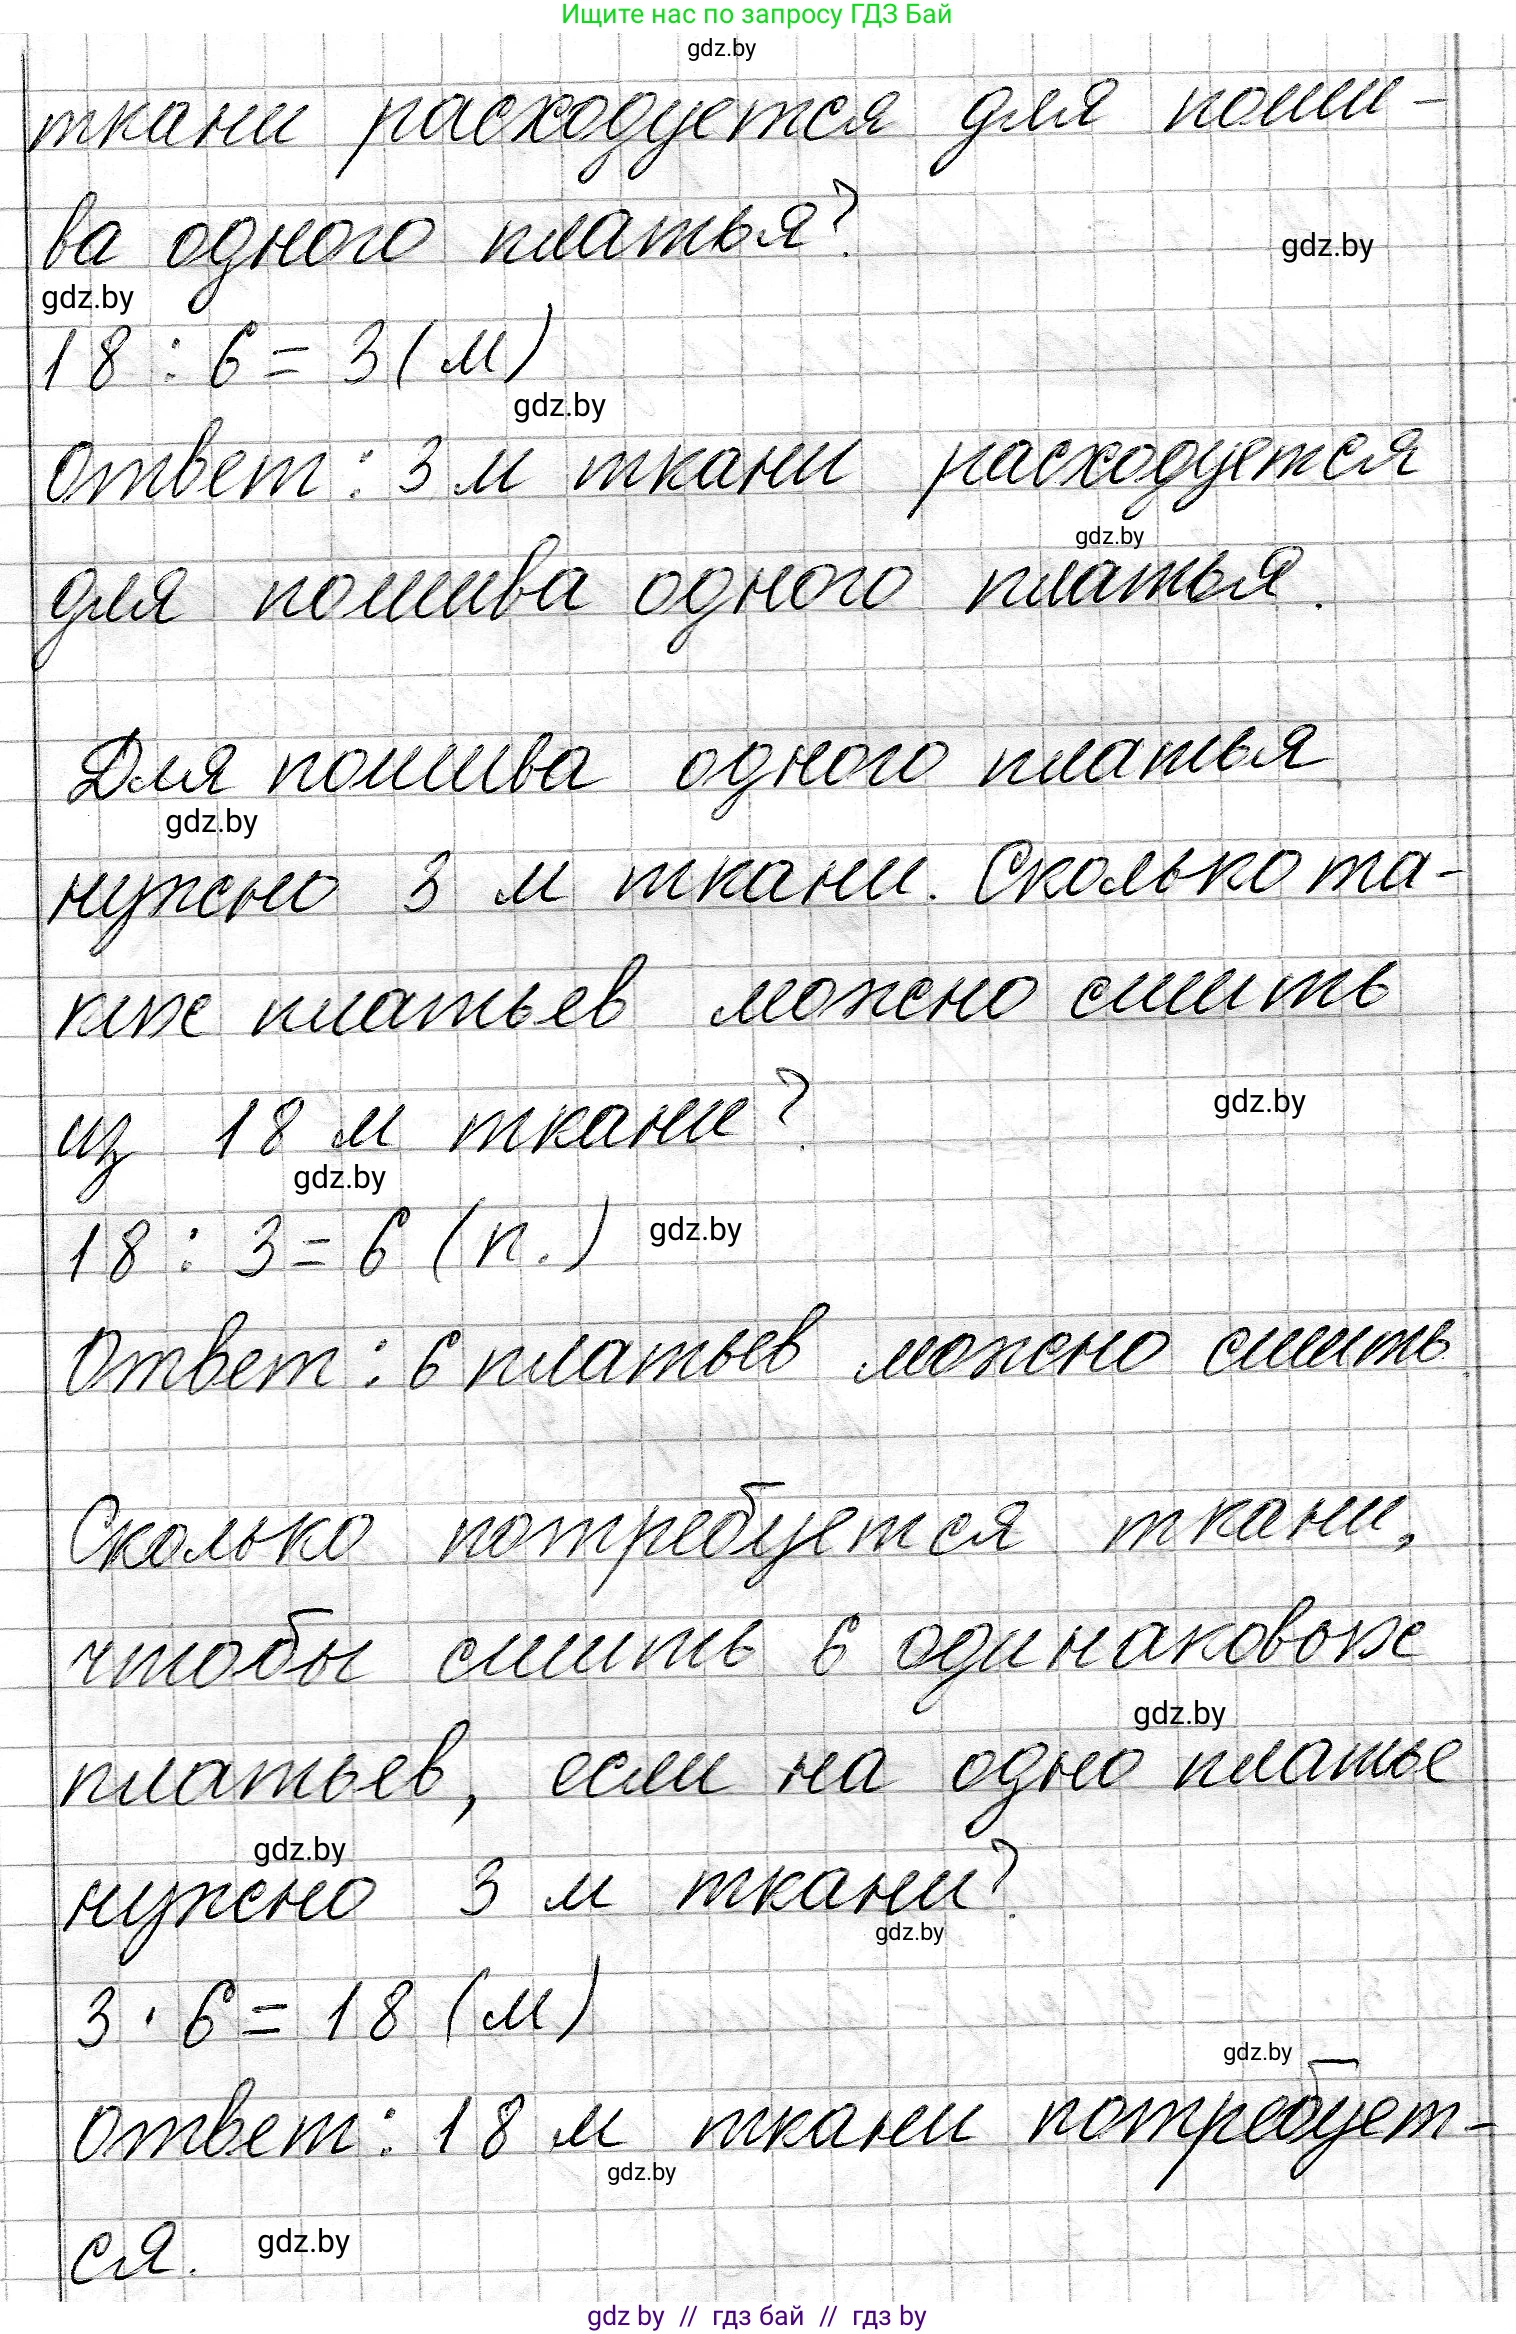 Ищите нас по запросу ГДЗ Бай
gdz.by
ткани расходуется для поши-
ва одного платья?
gdz.by
gdz.by
18 : 6 = 3 (м)
gdz.by
Ответ: 3 м ткани расходуется
gdz.by
для пошива одного платья.
Для пошива одного платья
gdz.by
нужно 3 м ткани. Сколько та-
ких платьев можно сшить
gdz.by
из 18 м ткани?
gdz.by
18 : 3 = 6 (п.) gdz.by
Ответ: 6 платьев можно сшить.
Сколько потребуется ткани,
чтобы сшить 6 одинаковых
gdz.by
платьев, если на одно платье
gdz.by
нужно 3 м ткани?
gdz.by
3 · 6 = 18 (м)
gdz.by
Ответ: 18 м ткани потребует-
gdz.by
ся. gdz.by
gdz by // гдз бай // гдз by